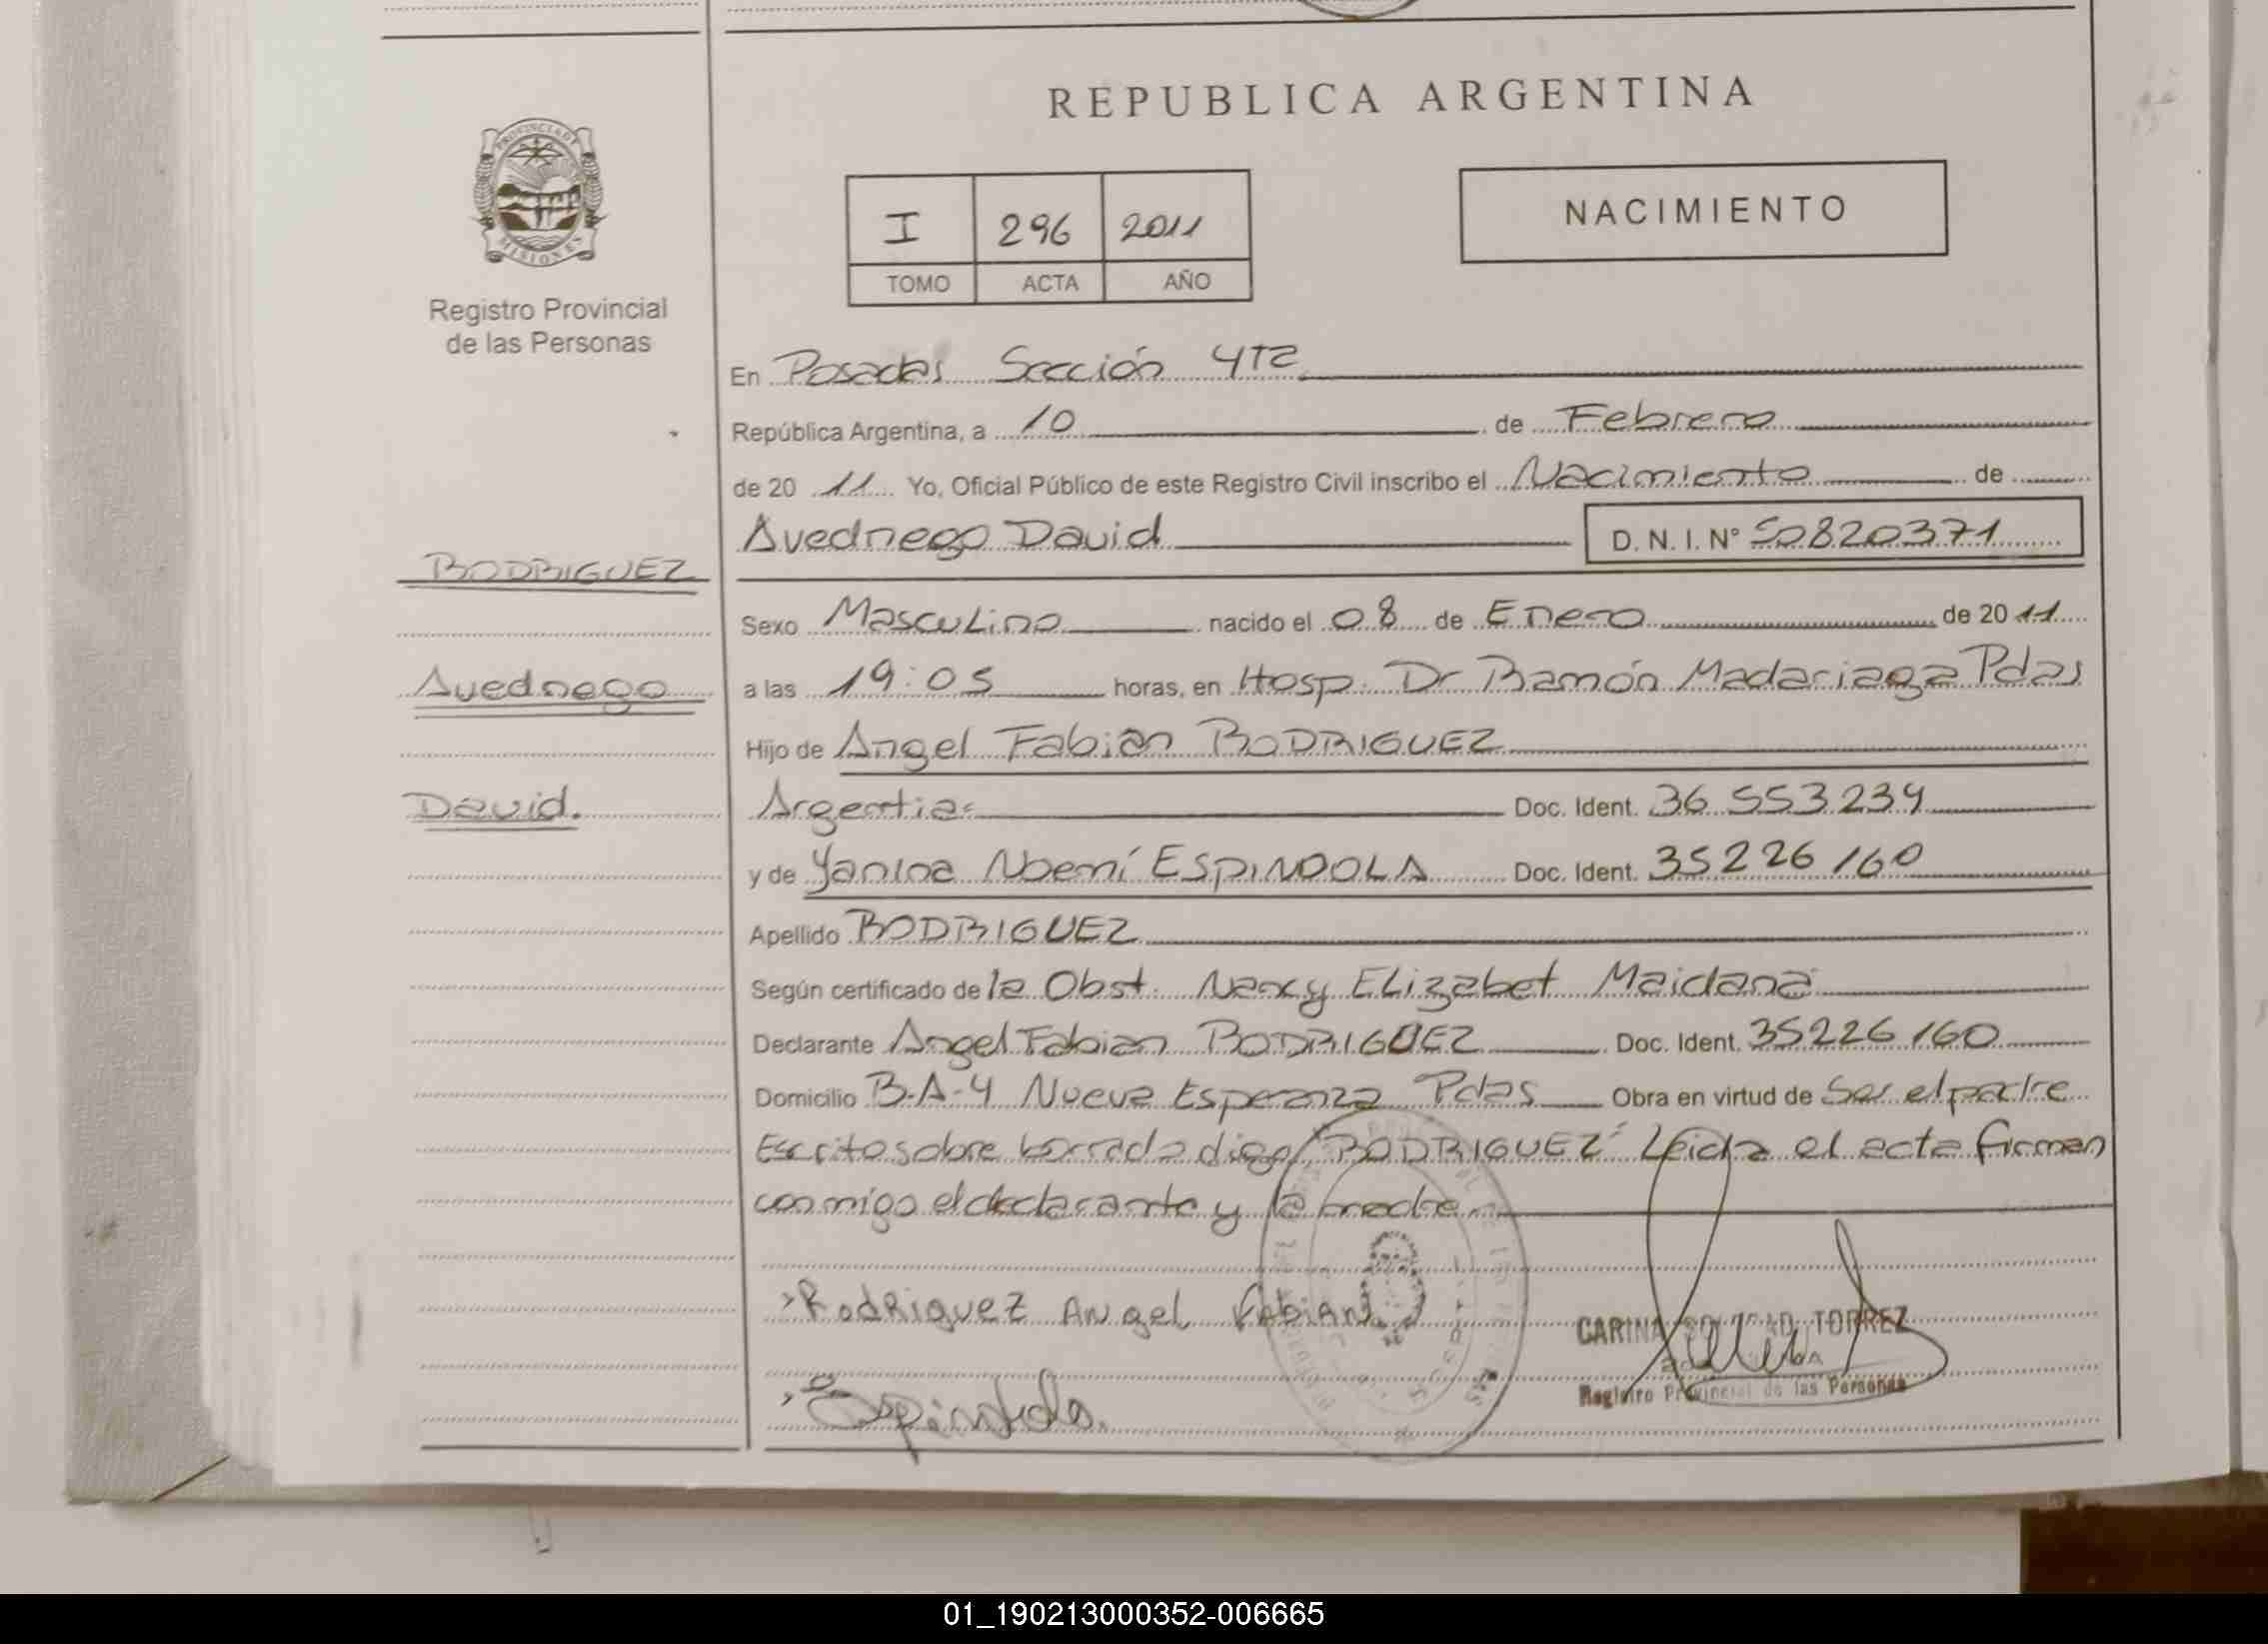 REPUBLICA ARGENTINA
PROVINCIA DE
MISIONES
Registro Provincial
de las Personas
I 296 2011
TOMO ACTA AÑO
NACIMIENTO
En Posadas Sección 4ta
República Argentina, a 10 de Febrero
de 20 11 Yo, Oficial Público de este Registro Civil inscribo el Nacimiento de
Avednego David D. N. I. N° 50820371
RODRIGUEZ
Avednego
David.
Sexo Masculino nacido el 08 de Enero de 20 11
a las 19:05 horas, en Hosp. Dr Ramón Madariaga Pdas
Hijo de Angel Fabian RODRIGUEZ
Argentia Doc. Ident. 36 553 234
y de Yanina Noemí ESPINDOLA Doc. Ident. 35226160
Apellido RODRIGUEZ
Según certificado de la Obst. Nancy Elizabet Maidana
Declarante Angel Fabian RODRIGUEZ Doc. Ident. 35226160
Domicilio B.A-4 Nueva Esperanza Pdas Obra en virtud de Ser el padre
Escrito sobre borrado digo "RODRIGUEZ" Leida el acta firman
conmigo el declarante y la madre
Rodriguez Angel Fabian
CARINA SOLEDAD TORREZ
Registro Provincial de las Personas
Espindola.
01_190213000352-006665